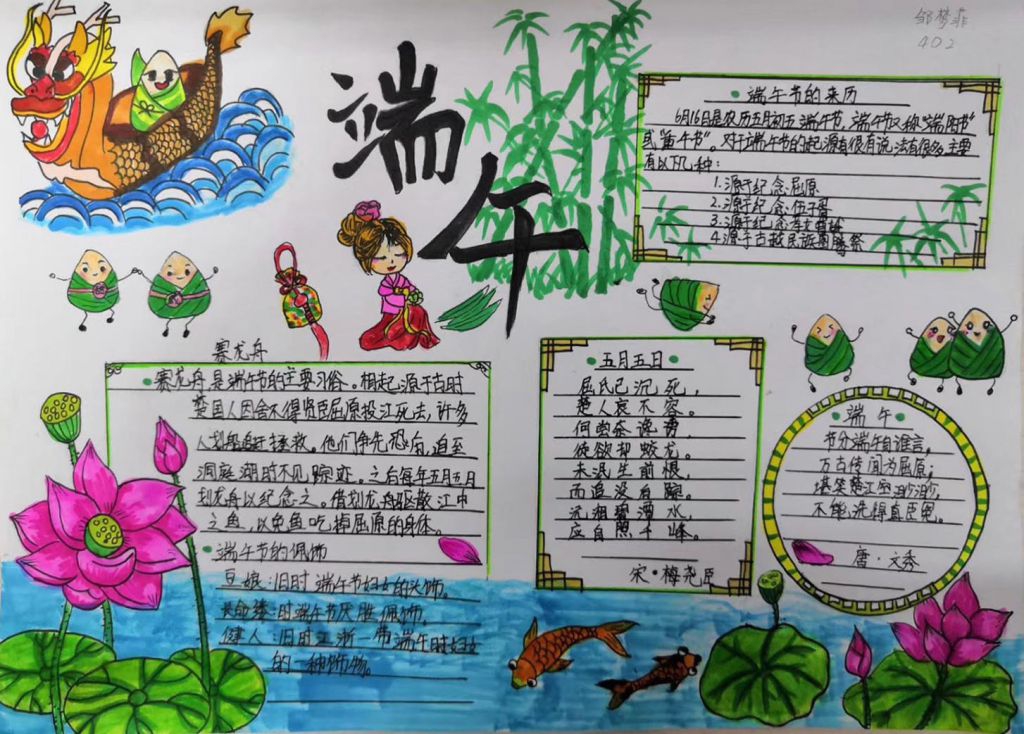 邹梦菲
402
端午
端午节的来历
6月16日是农历五月初五端午节,端午节又称"端阳节"
或"重午节"。对于端午节的起源有很有说法有很多,主要
有以下几种:
1.源于纪念屈原
2.源于纪念伍子胥
3.源于纪念孝女曹娥
4.源于古越民族图腾祭
赛龙舟
赛龙舟是端午节的主要习俗。相起源于古时
楚国人因舍不得贤臣屈原投江死去,许多
人划船追赶拯救。他们争先恐后,追至
洞庭湖时不见踪迹。之后每年五月五日
划龙舟以纪念之。借划龙舟驱散江中
之鱼,以免鱼吃掉屈原的身体。
端午节的佩饰
豆娘:旧时端午节妇女的头饰。
长命缕:时端午节厌胜佩饰。
健人:旧时江浙一带端午时妇女
的一种饰物。
五月五日
屈氏已沉死,
楚人哀不容。
何尝奈谗谤
徒欲却蛟龙。
未泯生前恨,
而追没后踪。
沅湘碧潭水,
应自照千峰。
宋·梅尧臣
端午
节分端午自谁言,
万古传闻为屈原;
堪笑楚江空渺渺,
不能洗得直臣冤。
唐·文秀